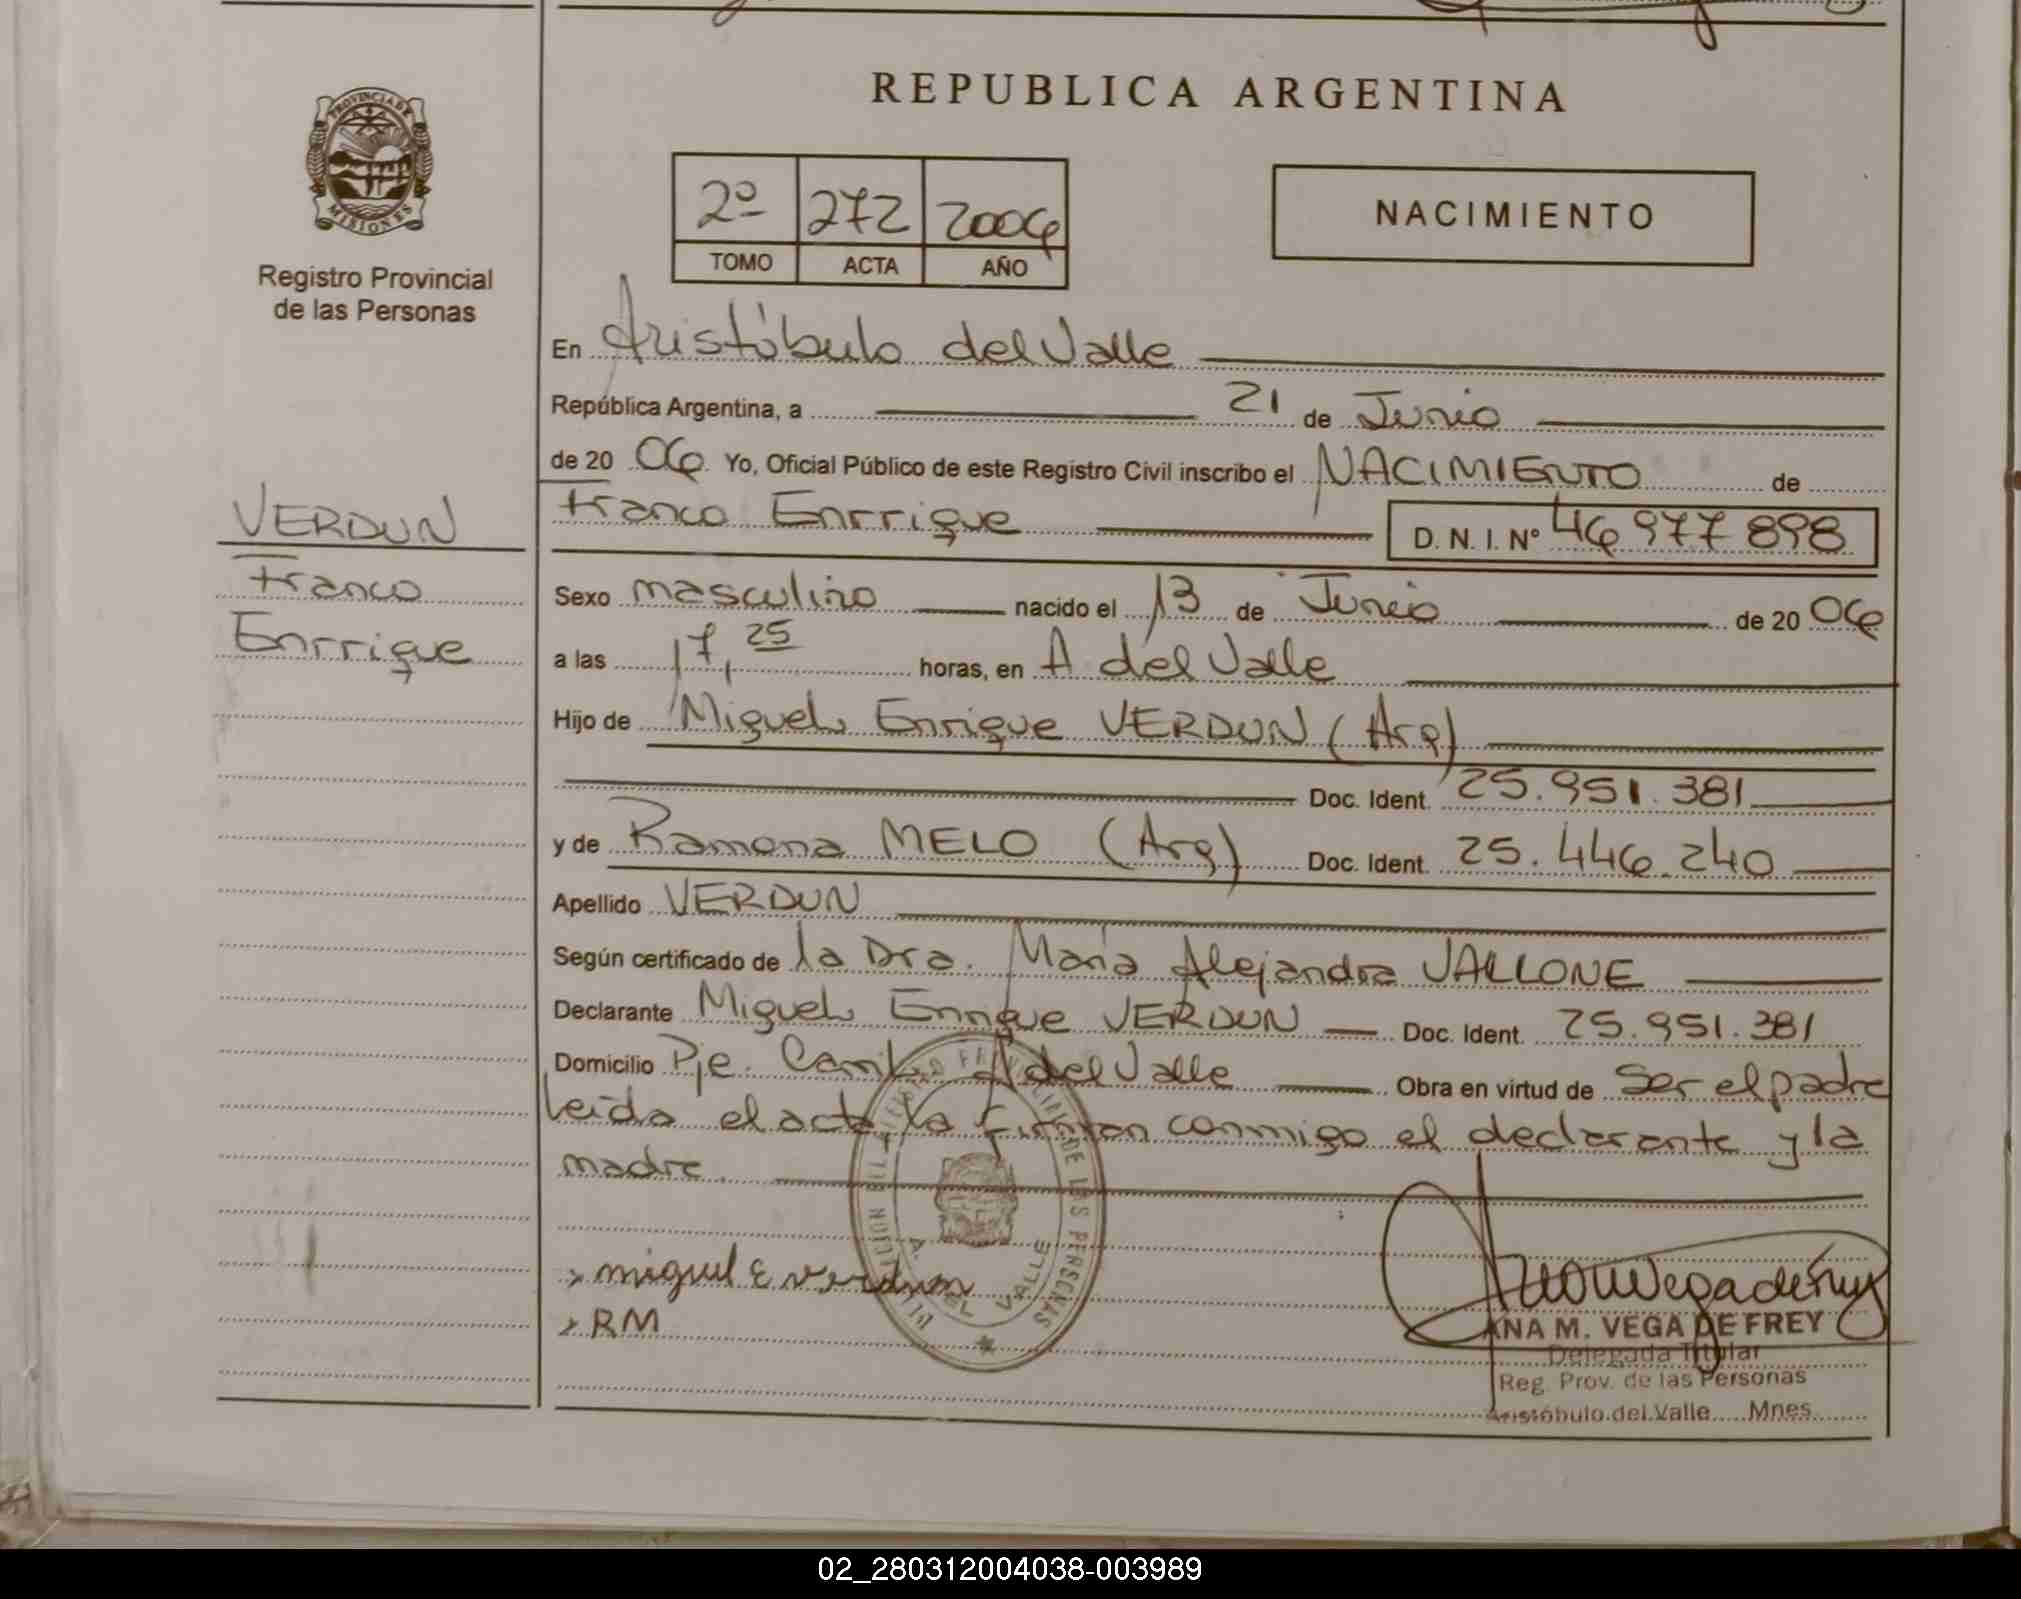 REPUBLICA ARGENTINA
PROVINCIA DE
MISIONES
Registro Provincial
de las Personas
2º 272 2006
TOMO ACTA AÑO
NACIMIENTO
En Aristóbulo del Valle
República Argentina, a 21 de Junio
de 20 06 Yo, Oficial Público de este Registro Civil inscribo el NACIMIENTO de
Franco Enrrique D. N. I. Nº 46 977 898
VERDUN
Franco
Enrrique
Sexo masculino nacido el 13 de Junio de 20 06
a las 17,25 horas, en A del Valle
Hijo de Miguel Enrique VERDUN (Arg)
Doc. Ident. 25.951.381
y de Ramona MELO (Arg) Doc. Ident. 25.446.240
Apellido VERDUN
Según certificado de la Dra. María Alejandra VALLONE
Declarante Miguel Enrique VERDUN Doc. Ident. 25.951.381
Domicilio Pje. A del Valle Obra en virtud de ser el padre
Leída el acta, la firman conmigo el declarante y la
madre.
miguel E verdun
RM
A. DEL VALLE
ANA M. VEGA DE FREY
Delegada Titular
Reg. Prov. de las Personas
Aristóbulo del Valle Mnes.
02_280312004038-003989